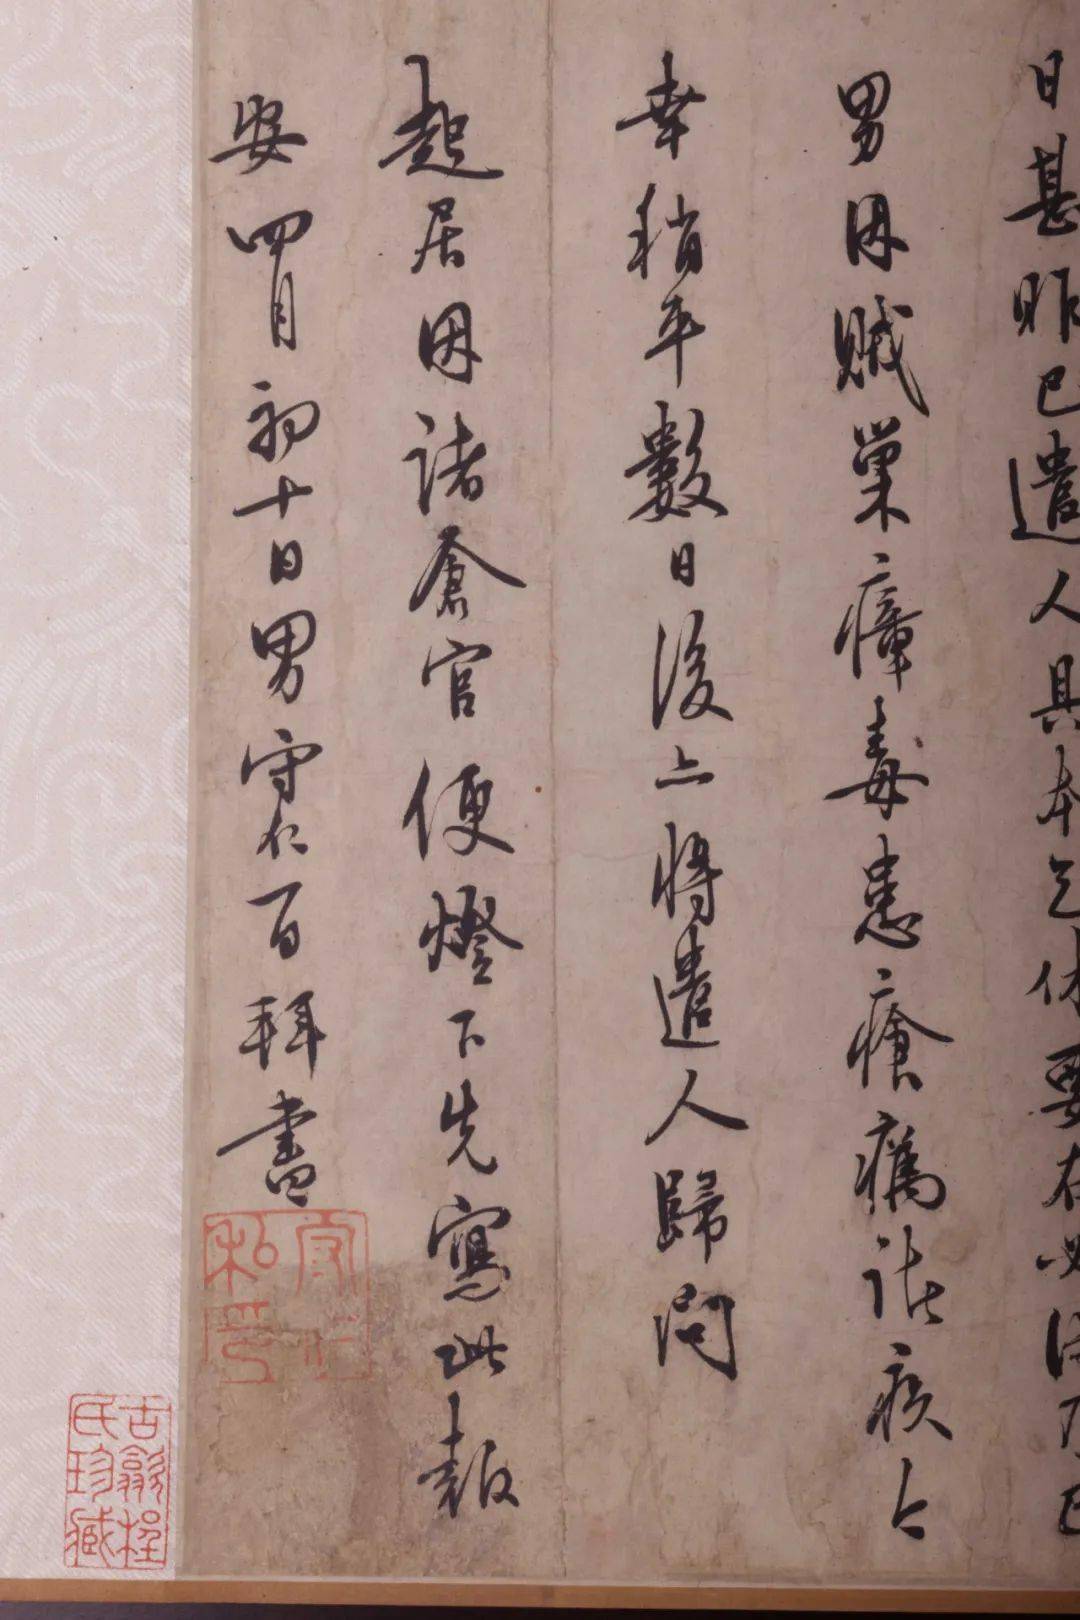 日甚昨已遣人具本乞休要在必得乃已
男因賊巢瘴毒患瘡癘諸疾今
幸稍平數日後亦將遣人歸問
起居因諸倉官便燈下先寫此報
安四月初十日男守仁百拜書
古歙程氏珍藏